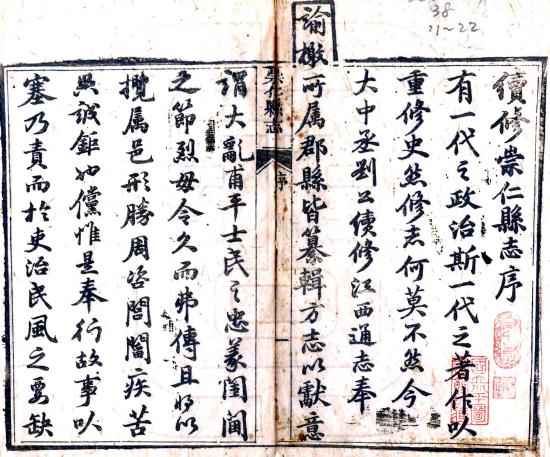 38
11~22
續修崇仁縣志序
有一代之政治斯一代之著作以
重修史然修志何莫不然今
大中丞劉公續修江西通志奉
諭檄所属郡縣皆纂輯方志以獻意
崇仁縣志 序
謂大亂甫平士民之忠義閨閫
之節烈毋令久而弗傳且将以
攬属邑形勝周咨閭閻疾苦
典誠鉅也儻惟是奉行故事以
塞乃責而於吏治民風之要缺